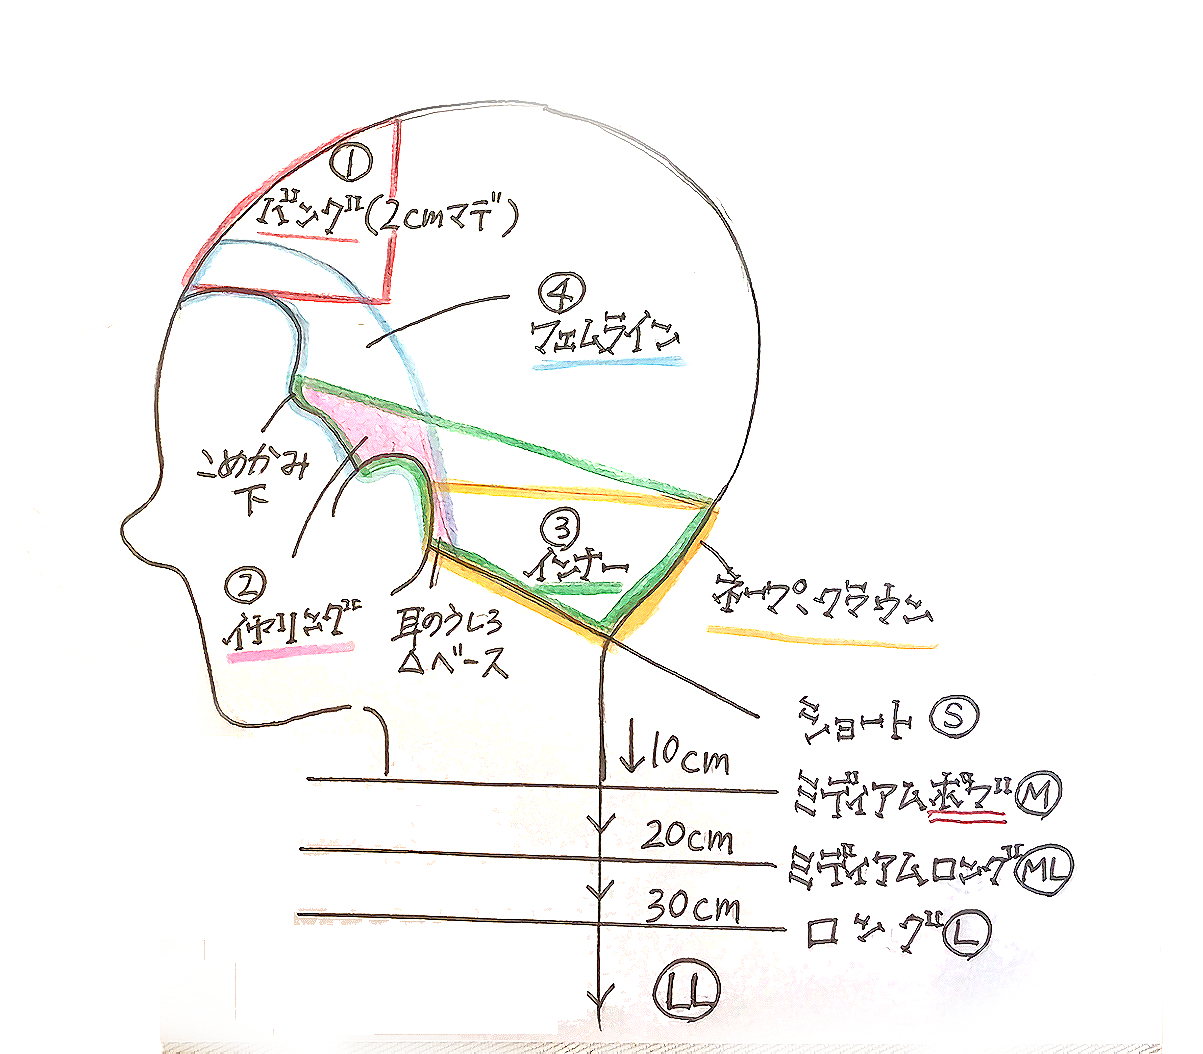 ①
バング(2cmマデ)
④
フェムライン
こめかみ
下
③
インナー
②
イヤリング
耳のうしろ
△ベース
ネープ、クラウン
ショート Ⓢ
↓10cm
ミディアムボブ Ⓜ
20cm
ミディアムロング ML
30cm
ロング Ⓛ
LL